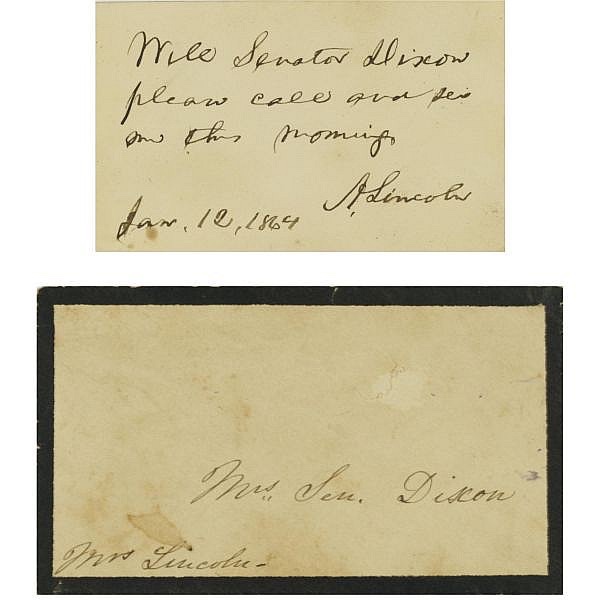 Will Senator Dixon
please call and see
me this morning
A. Lincoln
Jan. 12, 1864
Mrs. Sen. Dixon
Mrs Lincoln-